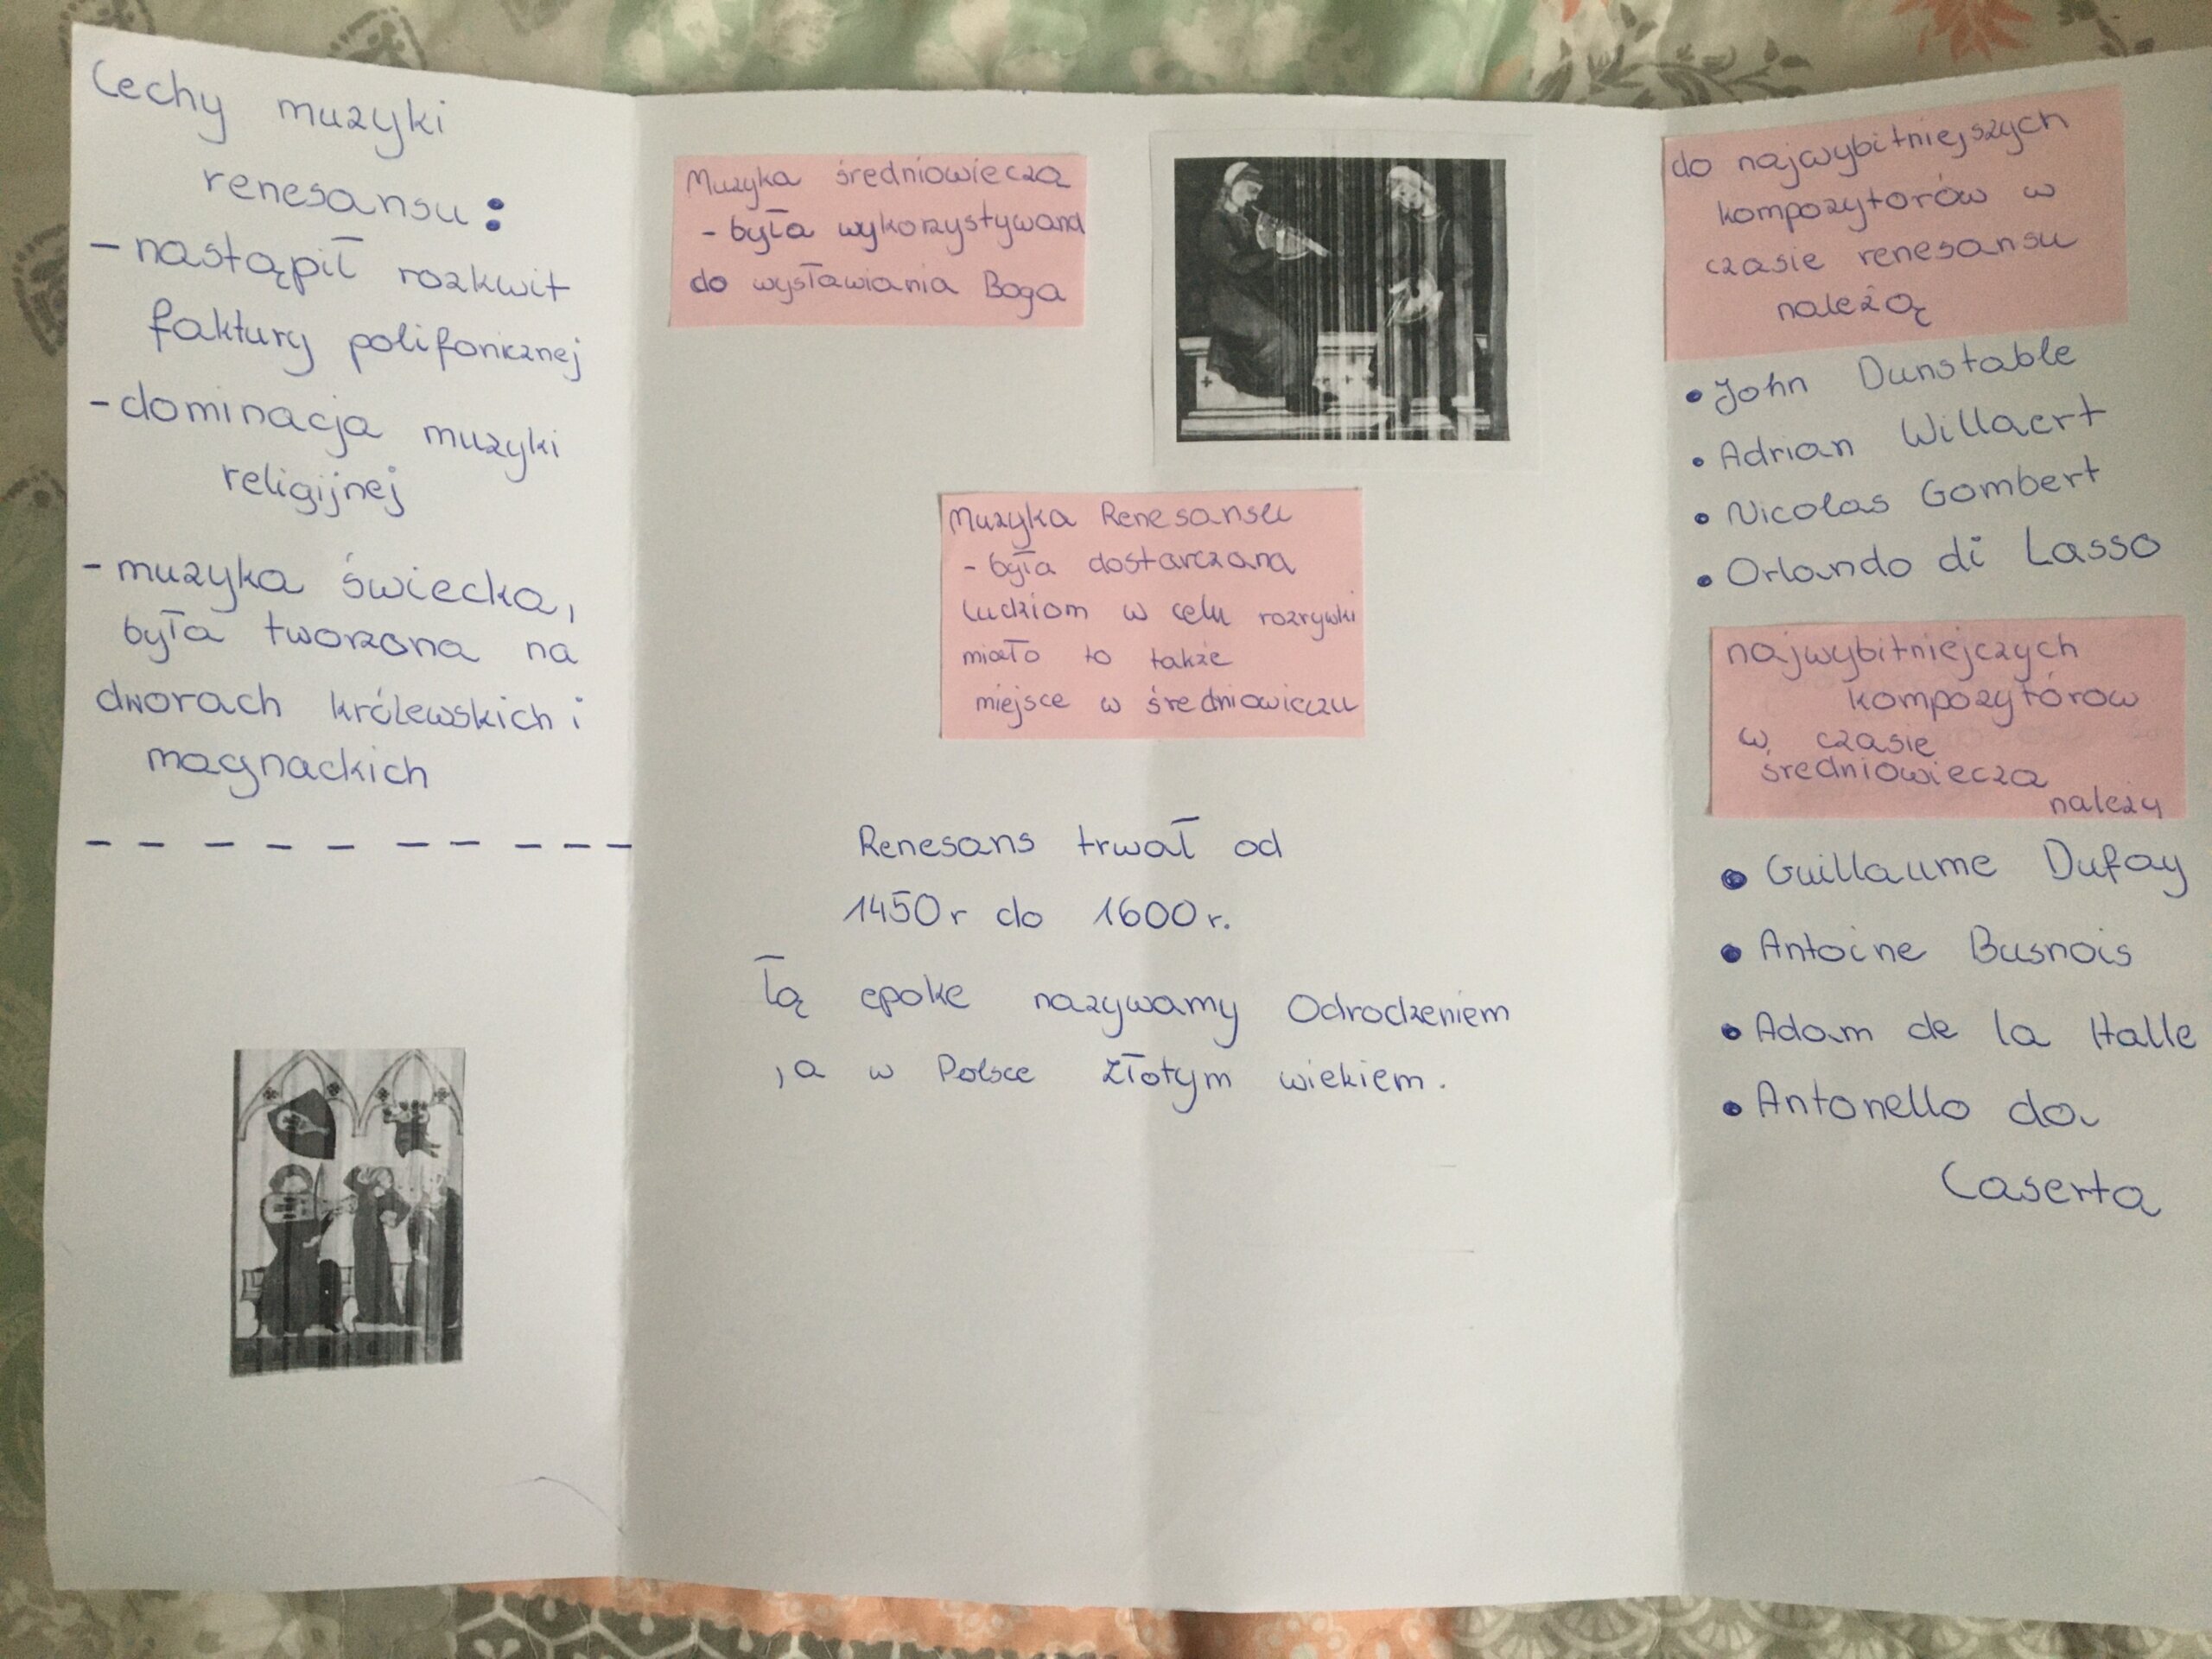 Cechy muzyki
renesansu:
- nastąpił rozkwit
faktury polifonicznej
- dominacja muzyki
religijnej
- muzyka świecka,
była tworzona na
dworach królewskich i
magnackich
Muzyka średniowiecza
- była wykorzystywana
do wysławiania Boga
Muzyka Renesansu
- była dostarczana
ludziom w celu rozrywki
miało to także
miejsce w średniowieczu
Renesans trwał od
1450r do 1600r.
Tą epoke nazywamy Odrodzeniem
,a w Polsce złotym wiekiem.
do najwybitniejszych
kompozytorów w
czasie renesansu
należą
• John Dunstable
• Adrian Willaert
• Nicolas Gombert
• Orlando di Lasso
najwybitniejczych
kompozytórow
w czasie
średniowiecza
należy
• Guillaume Dufay
• Antoine Busnois
• Adam de la Halle
• Antonello da
Caserta